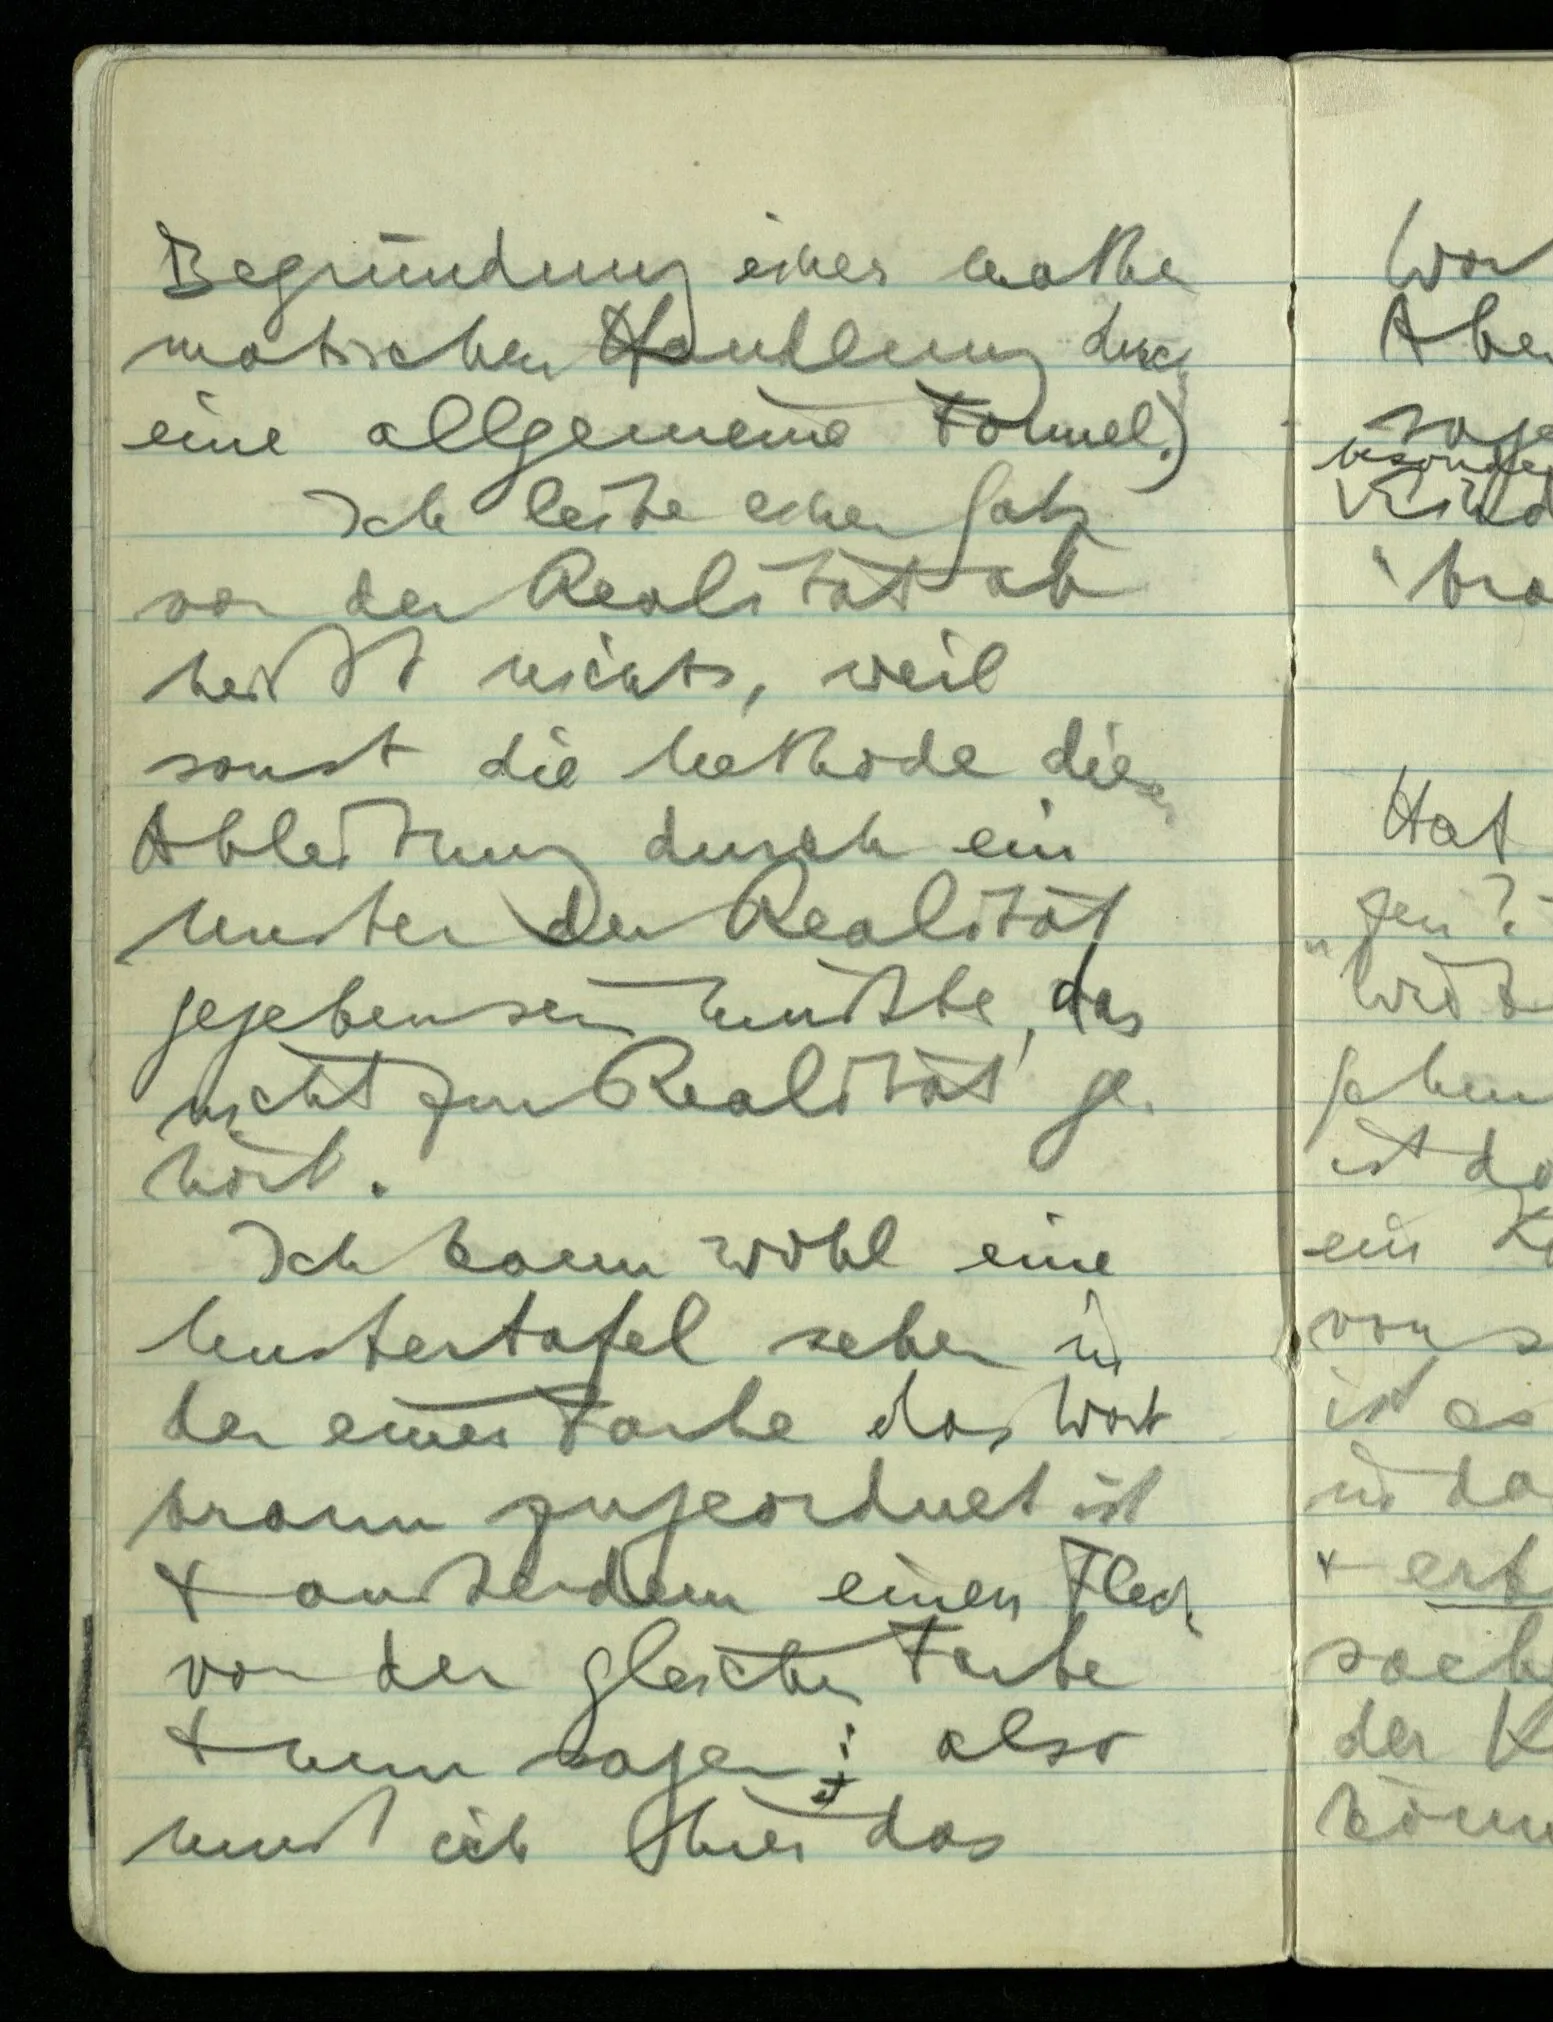 Begründung einer mathe
matischen Handlung durch
eine allgemeine Formel.)
Ich leite einen Satz
von der Realität ab
heißt nichts, weil
sonst die Methode dieser
Ableitung durch ein
Muster der Realität
gegeben sein müßte, das
nicht zur Realität ge-
hört.
Ich kann wohl eine
Mustertafel sehen in
der einer Farbe das Wort
braun zugeordnet ist
+ außerdem einen Fleck
von der gleichen Farbe
+ nun sagen: also
muß ich hier das
Wor
Aber
sage
besonde
Kind
"bra
Hat
gen?
"
ist da
ein K
von s
ist es
in da
+
sache
der K
könn